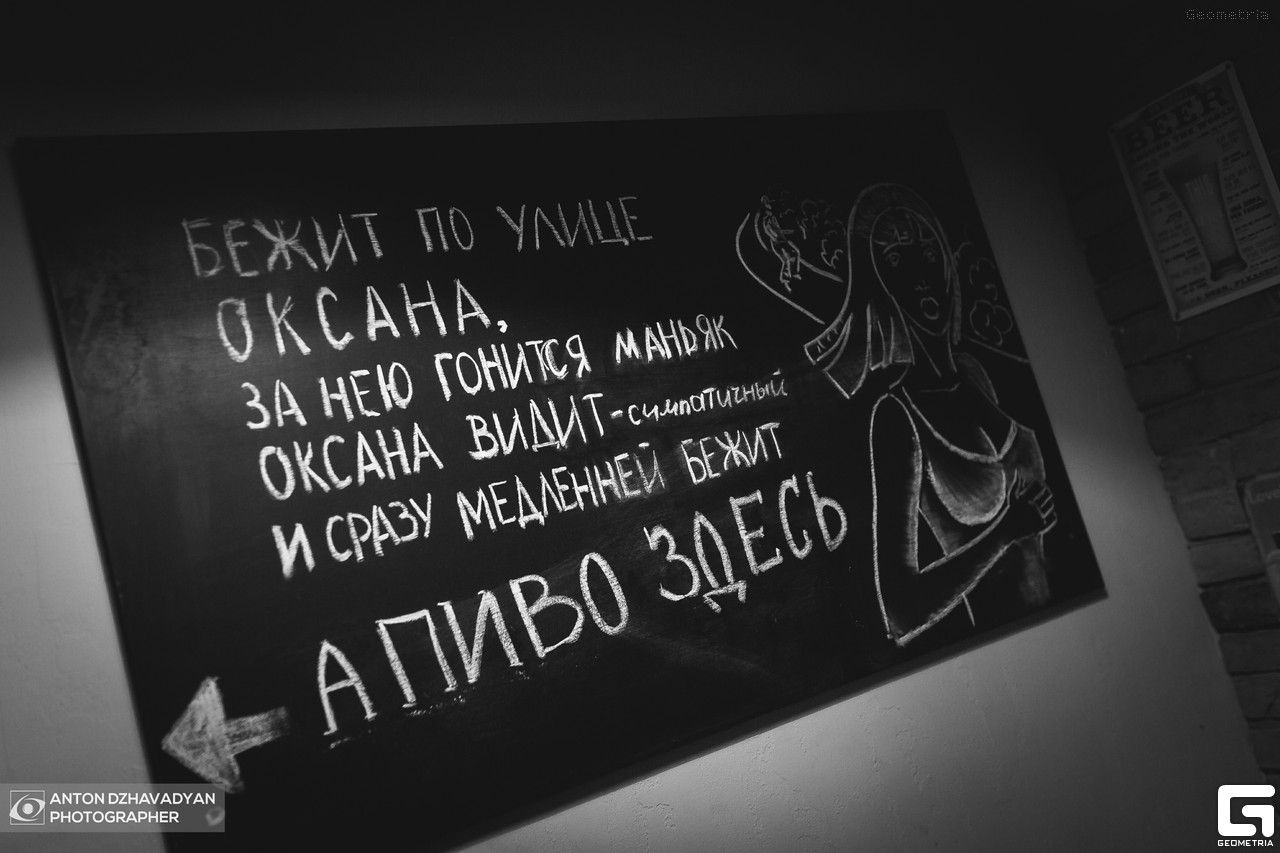 Geometria
BEER
БЕЖИТ ПО УЛИЦЕ
ОКСАНА,
ЗА НЕЮ ГОНИТСЯ МАНЬЯК
ОКСАНА ВИДИТ-симпатичный
И СРАЗУ МЕДЛЕННЕЙ БЕЖИТ
А ПИВО ЗДЕСЬ
ANTON DZHAVADYAN
PHOTOGRAPHER
GEOMETRIA